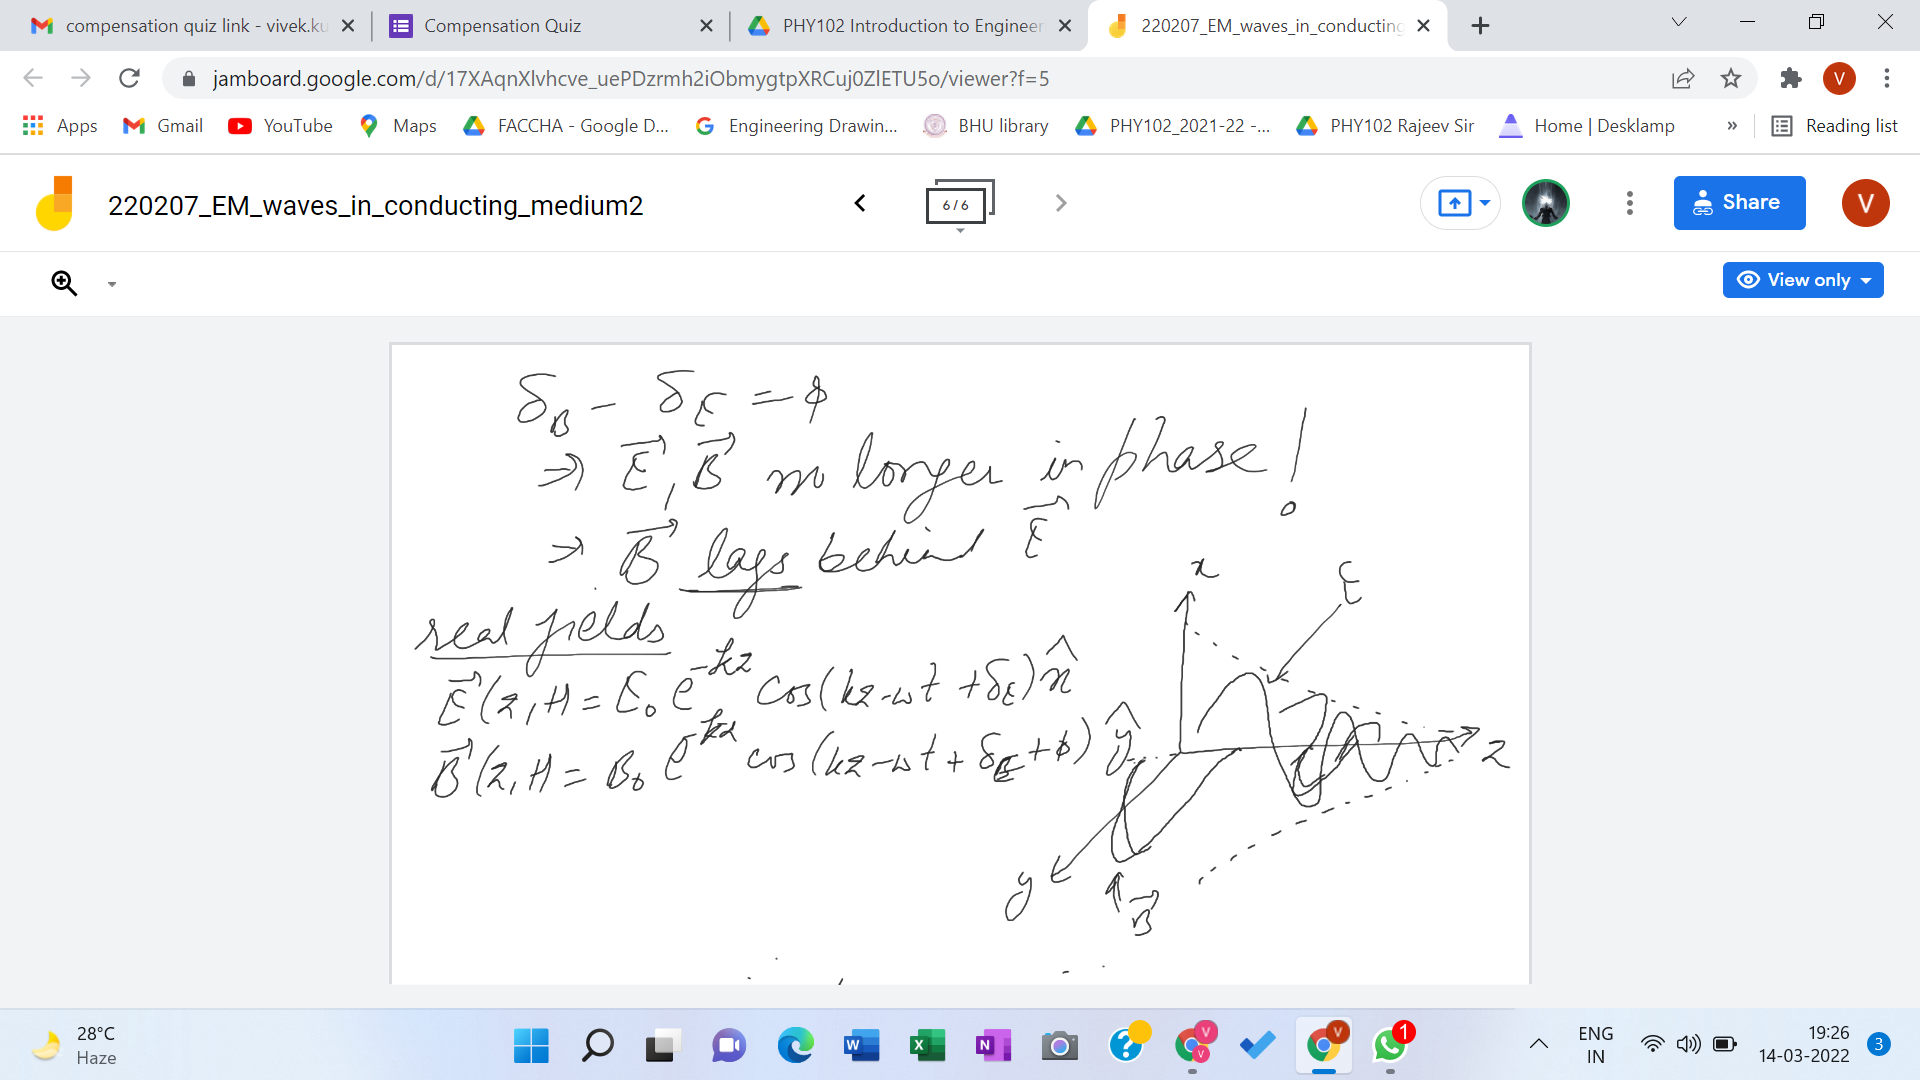 compensation quiz link - vivek.ku
Compensation Quiz
PHY102 Introduction to Engineer
220207_EM_waves_in_conducting
jamboard.google.com/d/17XAqnXlvhcve_uePDzrmh2iObmygtpXRCuj0ZlETU5o/viewer?f=5
V
Apps
Gmail
YouTube
Maps
FACCHA - Google D...
Engineering Drawin...
BHU library
PHY102_2021-22 -...
PHY102 Rajeev Sir
Home | Desklamp
»
Reading list
220207_EM_waves_in_conducting_medium2
6 / 6
Share
V
View only
δ_B - δ_E = φ
⇒ E⃗, B⃗ no longer in phase!
⇒ B⃗ lags behind E⃗
real fields
E⃗(z,t) = E₀ e^{-kz} cos(kz-ωt+δ_E) x̂
B⃗(z,t) = B₀ e^{-kz} cos(kz-ωt+δ_E+φ) ŷ
x
E
z
y
B⃗
28°C
Haze
ENG
IN
19:26
14-03-2022
3
1